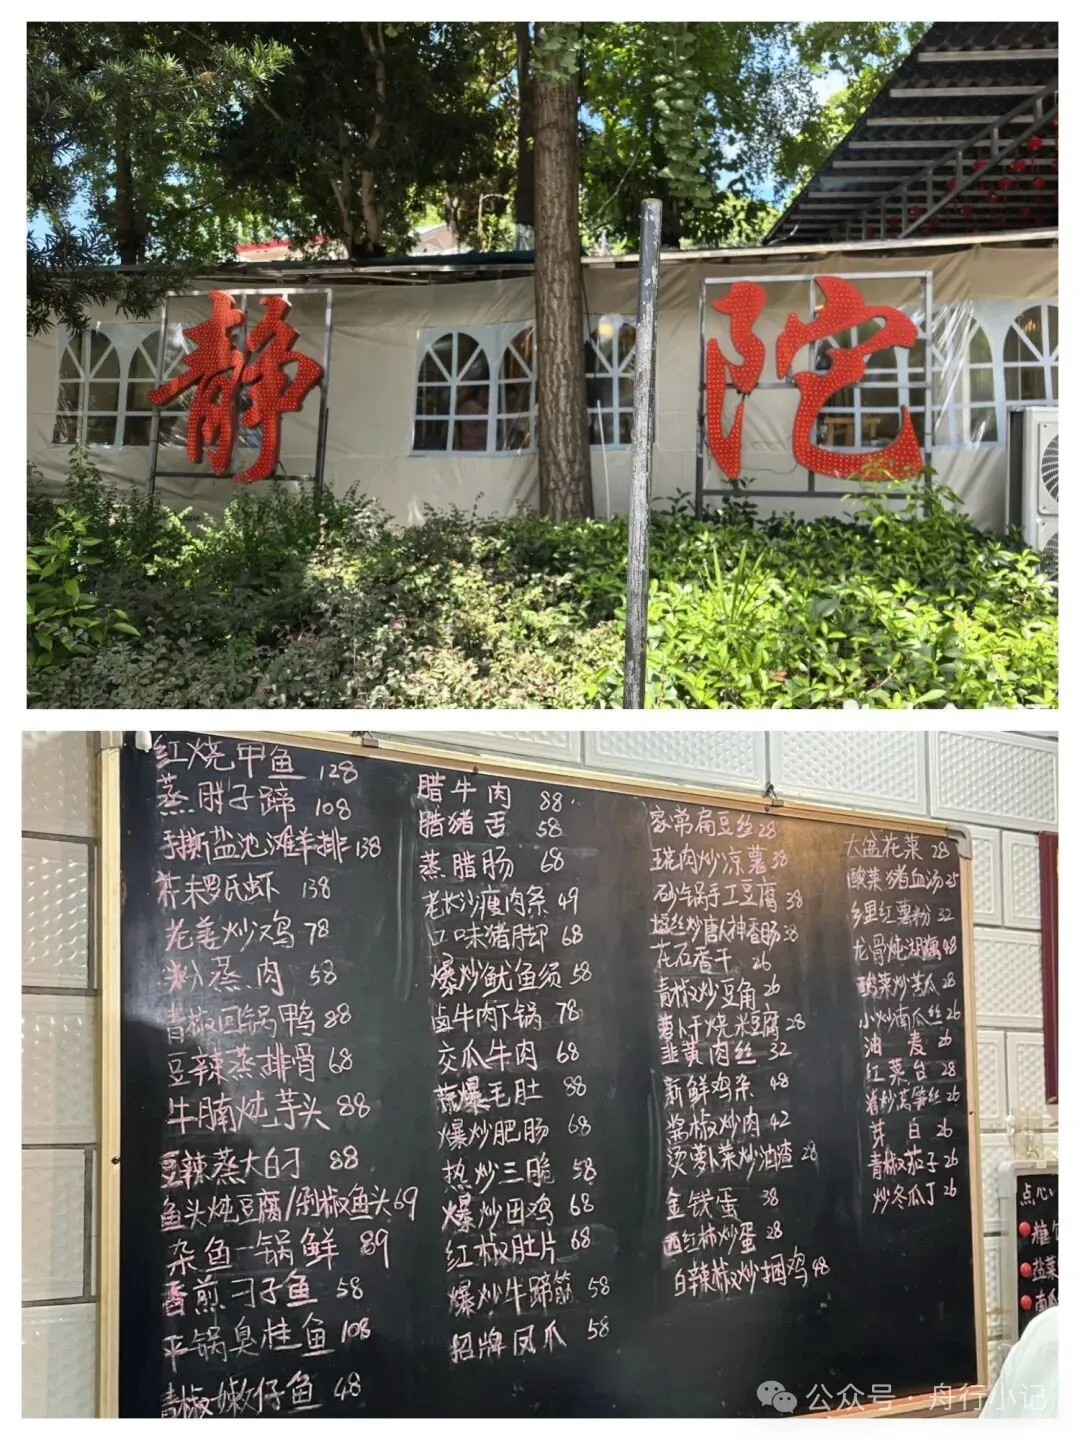 静 陀
红烧甲鱼 128
蒸肘子蹄 108
手撕盐池滩羊排 138
芥末罗氏虾 138
老姜炒鸡 78
粉蒸肉 58
青椒回锅鸭 88
豆辣蒸排骨 68
牛腩炖芋头 88
豆辣蒸大白刁 88
鱼头炖豆腐/剁椒鱼头 69
杂鱼一锅鲜 89
香煎刁子鱼 58
平锅臭桂鱼 108
青椒嫩仔鱼 48
腊牛肉 88
腊猪舌 58
蒸腊肠 68
老长沙瘦肉条 49
口味猪脚 68
爆炒鱿鱼须 58
卤牛肉下锅 78
交瓜牛肉 68
爆毛肚 88
爆炒肥肠 68
热炒三脆 58
爆炒田鸡 68
红椒肚片 68
爆炒牛蹄筋 58
招牌凤爪 58
家常扁豆丝 28
肉炒凉薯 38
砂锅手工豆腐 38
炒唐人神香肠 38
花石香干 26
青椒炒豆角 26
萝卜干烧米豆腐 28
韭黄肉丝 32
新鲜鸡杂 48
浆椒炒肉 42
烫萝卜菜炒油渣 28
金钱蛋 38
西红柿炒蛋 28
白辣椒炒捆鸡 48
大盆花菜 28
酸菜猪血汤 25
乡里红薯粉 32
龙骨炖湖藕 48
酸菜炒苦瓜 28
小炒南瓜丝 26
油麦 26
红菜台 28
炒莴笋丝 26
芽白 26
青椒茄子 26
炒冬瓜丁 26
点心
糖
盐菜
南瓜
公众号·舟行小记